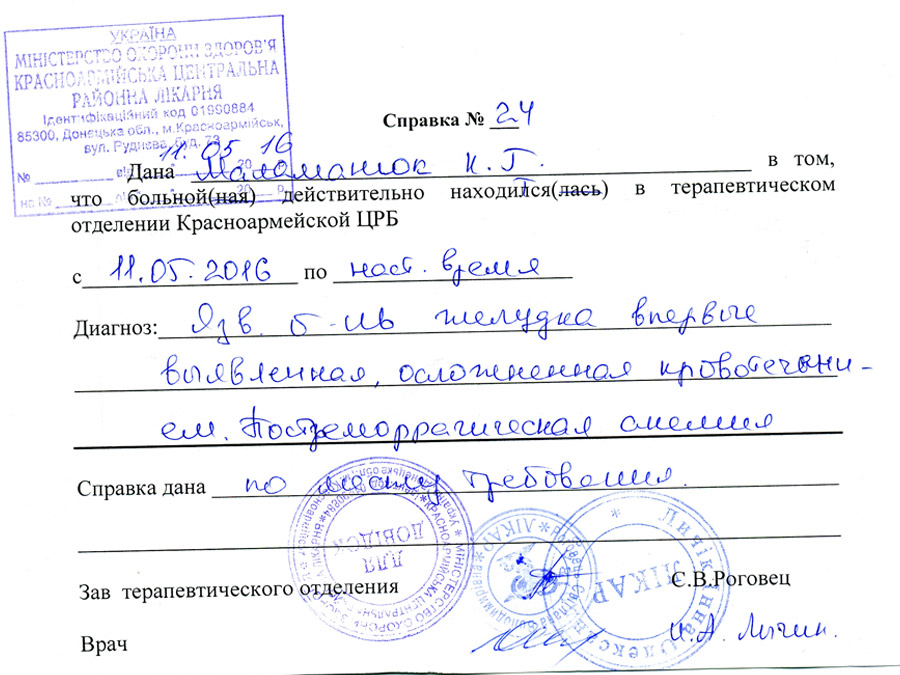 УКРАЇНА
МІНІСТЕРСТВО ОХОРОНИ ЗДОРОВ'Я
КРАСНОАРМІЙСЬКА ЦЕНТРАЛЬНА
РАЙОННА ЛІКАРНЯ
Ідентифікаційний код 01990884
85300, Донецька обл., м.Красноармійськ,
вул. Руднєва, буд. 73
11.05 16
Справка № 24
Дана Маламанюк Н. Г. в том,
что больной(ная) действительно находился(лась) в терапевтическом
отделении Красноармейской ЦРБ
с 11.05.2016 по наст. время
Диагноз: Язв. б-нь желудка впервые
выявленная, осложненная кровотечени-
ем. Постгеморрагическая анемия
Справка дана по месту требования.
ДЛЯ
ДОВІДОК
ЛІКАР
ЛІКАР
Зав терапевтического отделения С.В.Роговец
Врач